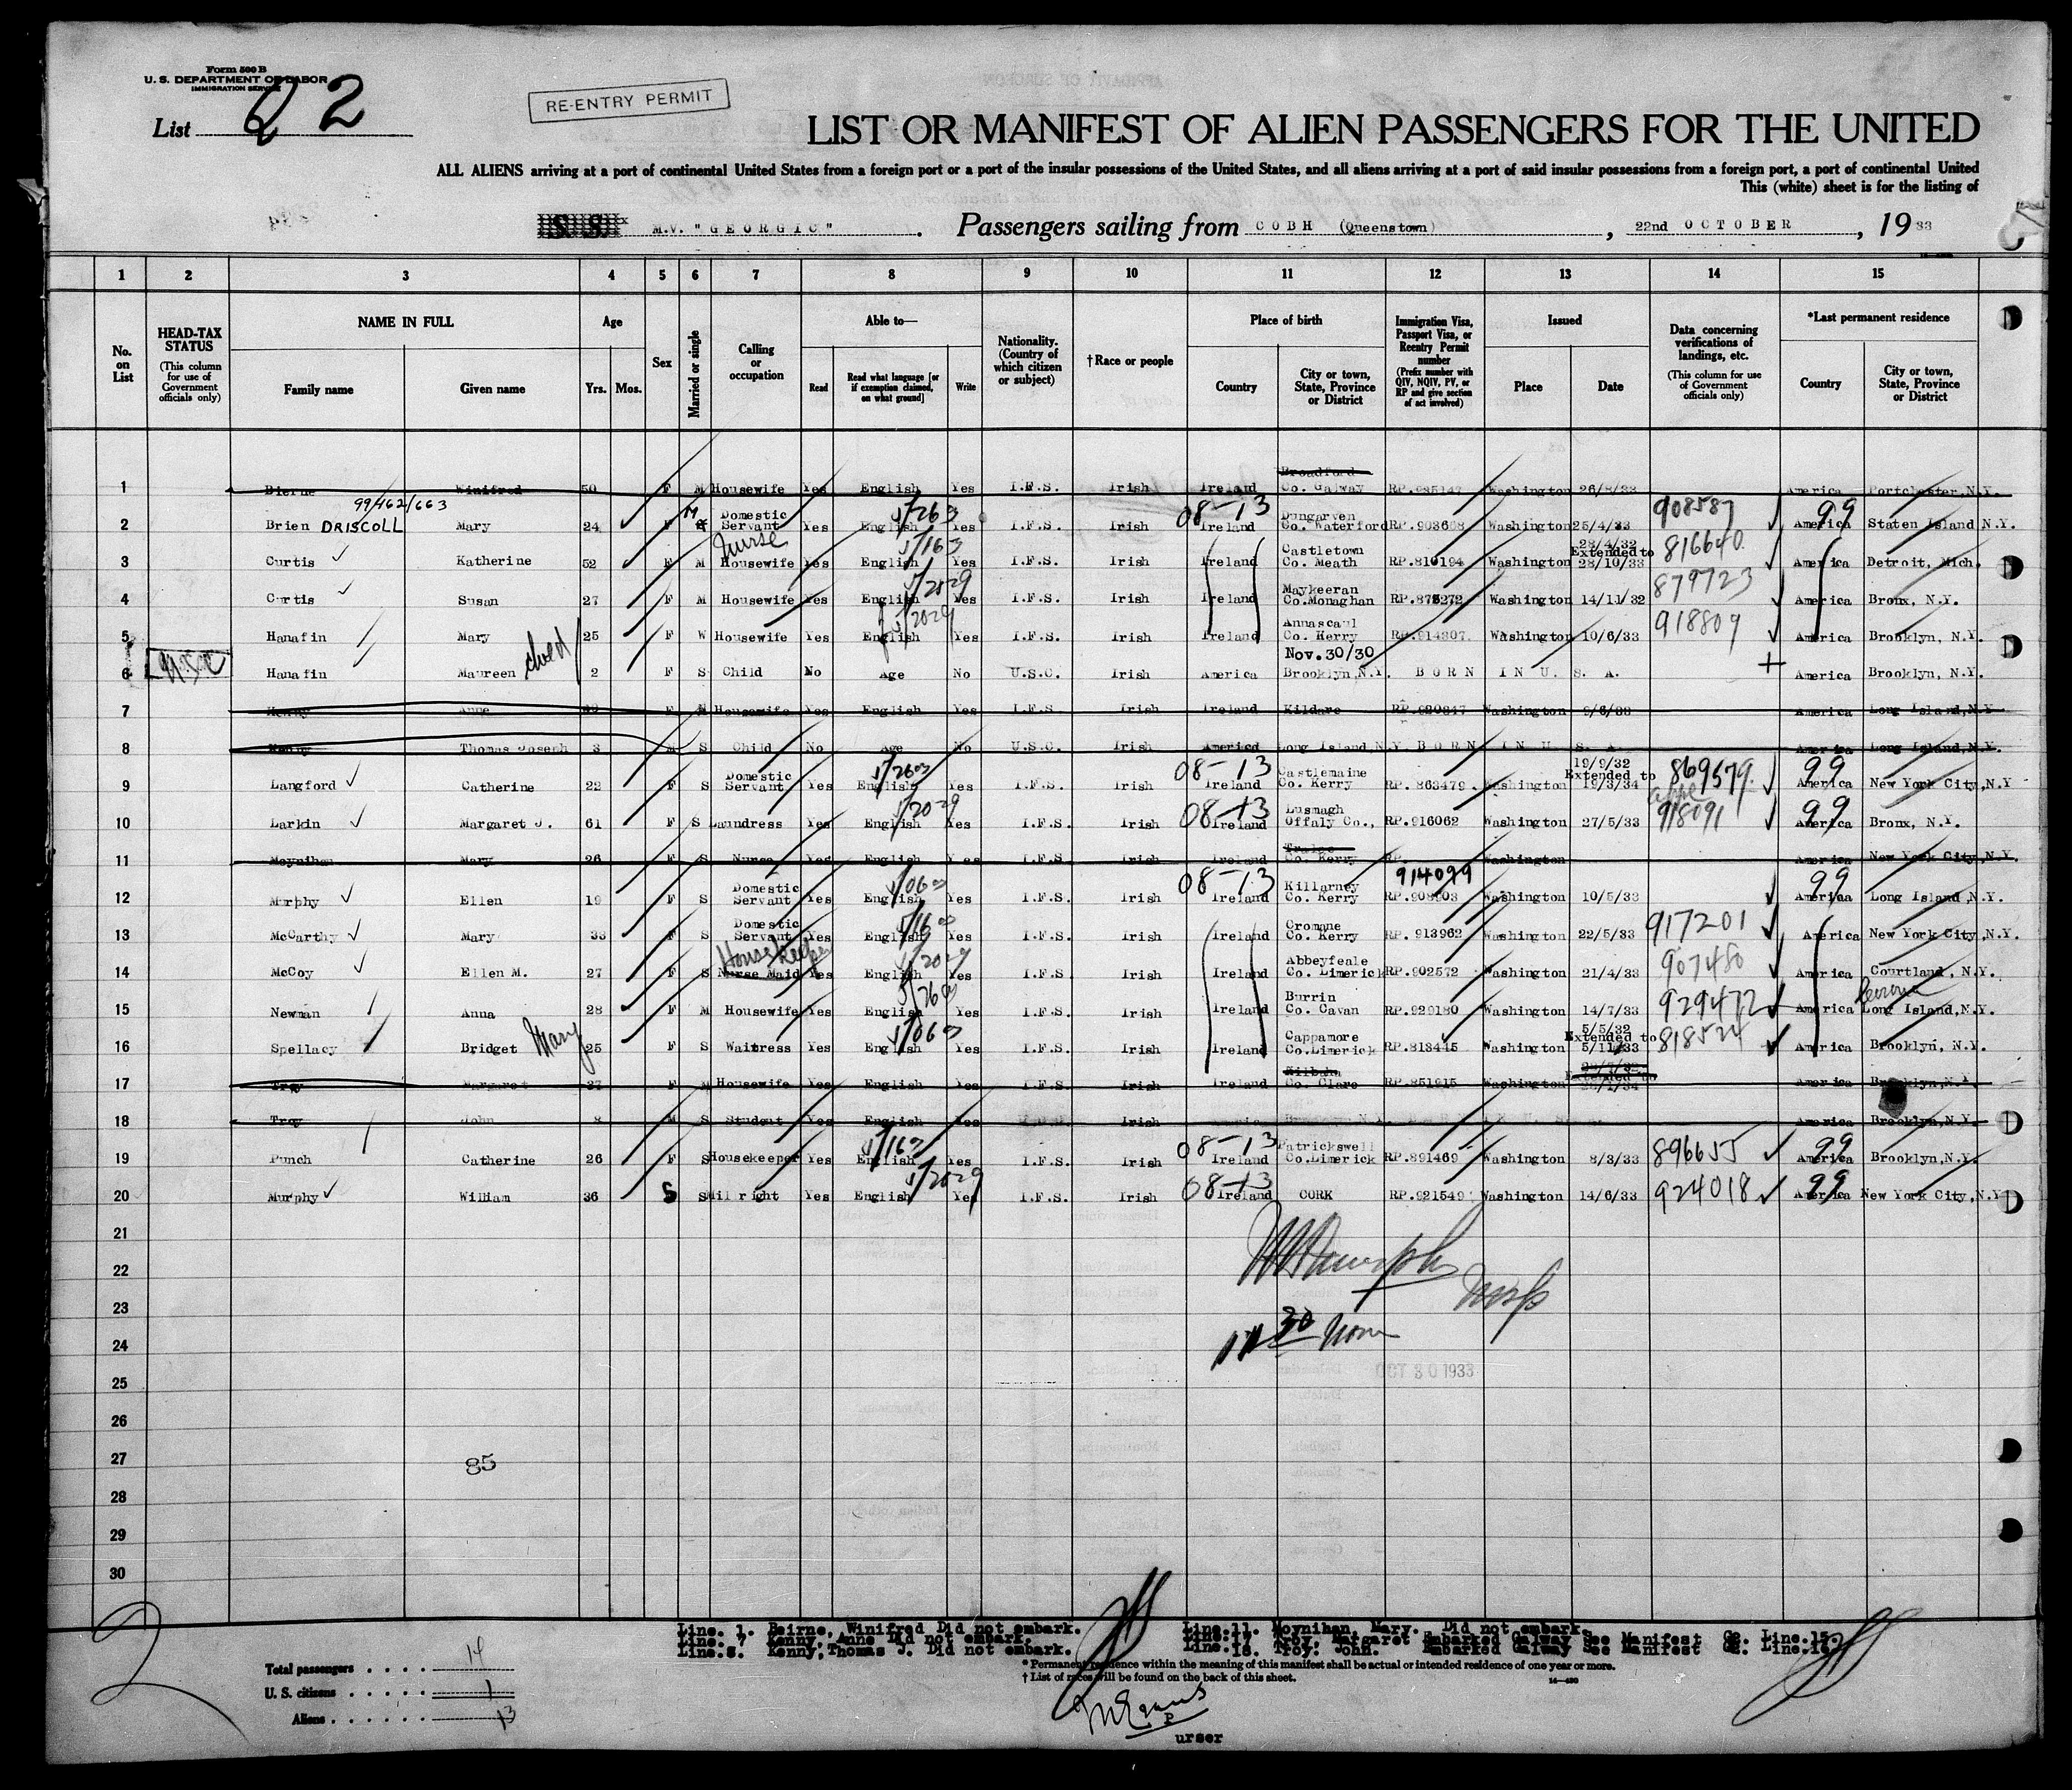 Form 500 B
U. S. DEPARTMENT OF LABOR
IMMIGRATION SERVICE
List 22
RE-ENTRY PERMIT
LIST OR MANIFEST OF ALIEN PASSENGERS FOR THE UNITED
ALL ALIENS arriving at a port of continental United States from a foreign port or a port of the insular possessions of the United States, and all aliens arriving at a port of said insular possessions from a foreign port, a port of continental United
This (white) sheet is for the listing of
M.V. "GEORGIC" . Passengers sailing from COBH (Queenstown) , 22nd OCTOBER , 1933
1 2 3 4 5 6 7 8 9 10 11 12 13 14 15
No. on List
HEAD-TAX STATUS (This column for use of Government officials only)
NAME IN FULL
Family name
Given name
Age
Yrs. Mos.
Sex
Married or single
Calling or occupation
Able to—
Read
Read what language [or if exemption claimed, on what ground]
Write
Nationality. (Country of which citizen or subject)
† Race or people
Place of birth
Country
City or town, State, Province or District
Immigration Visa, Passport Visa, or Reentry Permit number (Prefix number with QIV, NQIV, PV, or RP and give section of act involved)
Issued
Place
Date
Data concerning verifications of landings, etc. (This column for use of Government officials only)
*Last permanent residence
Country
City or town, State, Province or District
1 Bierne Winifred 50 F M Housewife Yes English Yes I.F.S. Irish Ireland Broadford Co. Galway RP.935147 Washington 26/8/33 America Portchester,N.Y.
99/462/663
2 Brien DRISCOLL Mary 24 F M Domestic Servant Yes English Yes I.F.S. Irish 08-13 Ireland Dungarven Co. Waterford RP.903668 Washington 25/4/33 908587 99 America Staten Island N.Y.
3 Curtis Katherine 52 F M Nurse Housewife Yes English Yes I.F.S. Irish Ireland Castletown Co. Meath RP.810194 Washington 28/4/32 Extended to 28/10/33 816640 America Detroit, Mich.
4 Curtis Susan 27 F M Housewife Yes English Yes I.F.S. Irish Ireland Maykeeran Co.Monaghan RP.875272 Washington 14/11/32 879723 America Bronx, N.Y.
5 Hanafin Mary 25 F W Housewife Yes English Yes I.F.S. Irish Ireland Annascaul Co. Kerry RP.914307. Washington 10/6/33 918809 America Brooklyn, N.Y.
6 USC Hanafin Maureen child 2 F S Child No Age No U.S.C. Irish America Nov.30/30 Brooklyn,N.Y. BORN IN U. S. A. America Brooklyn, N.Y.
7 Kenny Anne F M Housewife Yes English Yes I.F.S. Irish Ireland Kildare RP.920847 Washington 9/6/33 America Long Island,N.Y.
8 Kenny Thomas Joseph 3 M S Child No Age No U.S.C. Irish America Long Island,N.Y. BORN IN U. S. A. America Long Island,N.Y.
9 Langford Catherine 22 F S Domestic Servant Yes English Yes I.F.S. Irish 08-13 Ireland Castlemaine Co. Kerry RP. 863479. Washington 19/9/32 Extended to 19/3/34 869579 99 America New York City,N.Y
10 Larkin Margaret J. 61 F S Laundress Yes English Yes I.F.S. Irish 08-13 Ireland Lusmagh Offaly Co., RP.916062 Washington 27/5/33 918091 99 America Bronx, N.Y.
11 Moynihan Mary 26 F S Nurse Yes English Yes I.F.S Irish Ireland Tralee Co. Kerry RP. Washington America New York City,N.Y.
12 Murphy Ellen 19 F S Domestic Servant Yes English Yes I.F.S. Irish 08-13 Ireland Killarney Co. Kerry 914099 RP.908903 Washington 10/5/33 99 America Long Island,N.Y.
13 McCarthy Mary 33 F S Domestic Servant Yes English Yes I.F.S. Irish Ireland Cromane Co. Kerry RP. 913962 Washington 22/5/33 917201 America New York City,N.Y.
14 McCoy Ellen M. 27 F S Housekeeper Nurse Maid Yes English Yes I.F.S Irish Ireland Abbeyfeale Co. Limerick RP.902572 Washington 21/4/33 907480 America Courtland, N.Y.
15 Newman Anna 28 F M Housewife Yes English Yes I.F.S. Irish Ireland Burrin Co. Cavan RP.929180 Washington 14/7/33 929472 America Long Island,N.Y.
16 Spellacy Bridget Mary 25 F S Waitress Yes English Yes I.F.S. Irish Ireland Cappamore Co.Limerick RP.813445 Washington 5/5/32 Extended to 5/11/33 818524 America Brooklyn, N.Y.
17 Troy Margaret 37 F M Housewife Yes English Yes I.F.S. Irish Ireland Kilbaha Co. Clare RP.851915 Washington America Brooklyn,N.Y.
18 Troy John 8 M S Student Yes English Yes Irish America Brooklyn,N.Y.
19 Punch Catherine 26 F S Housekeeper Yes English Yes I.F.S. Irish 08-13 Ireland Patrickswell Co.Limerick RP.891469 Washington 8/3/33 896655 99 America Brooklyn,N.Y.
20 Murphy William 36 S S Milright Yes English Yes I.F.S. Irish 08-13 Ireland CORK RP.921549 Washington 14/6/33 924018 99 America New York City,N.Y
21
22
23
24
OCT 30 1933
25
26
27
85
28
29
30
Line. 1. Beirne, Winifred Did not embark.
Line. 7 Kenny,Anne Did not embark.
Line.8. Kenny,Thomas J. Did not embark.
Line.11. Moynihan, Mary. Did not embark.
Line.17. Troy, Margaret Embarked Galway See Manifest Line.15.
Line.18. Troy. John. Embarked Galway See Manifest
* Permanent residence within the meaning of this manifest shall be actual or intended residence of one year or more.
† List of races will be found on the back of this sheet.
Total passengers . . . . 14
U. S. citizens . . . . . 1
Aliens . . . . . . 13
Purser